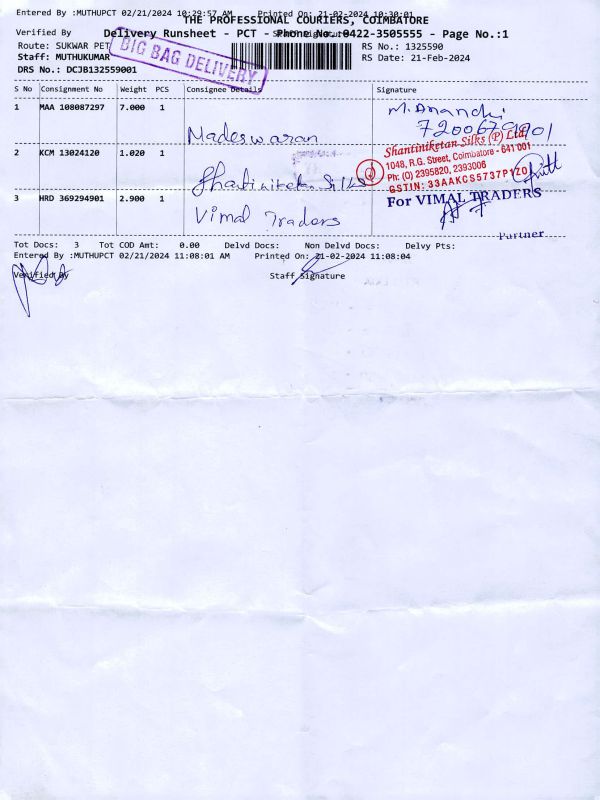 Entered By :MUTHUPCT 02/21/2024 10:29:57 AM Printed On: 21-02-2024 10:30:01
THE PROFESSIONAL COURIERS, COIMBATORE
Verified By
Delivery Runsheet - PCT - Phone No. 0422-3505555 - Page No.:1
Route: SUKWAR PET
BIG BAG DELIVERY
RS No.: 1325590
Staff: MUTHUKUMAR
RS Date: 21-Feb-2024
DRS No.: DCJB132559001
S No Consignment No Weight PCS Consignee Details Signature
1 MAA 108087297 7.000 1
Madeswaran
M. Anandhi
2 KCM 13024120 1.020 1
Shantiniketan Silks
Shantiniketan Silks (P) Ltd
1048, R.G. Street, Coimbatore - 641 001
Ph: (O) 2395820, 2393006
GSTIN: 33AAKCS5737P1ZO
3 HRD 369294901 2.900 1
Vimal Traders
For VIMAL TRADERS
Partner
Tot Docs: 3 Tot COD Amt: 0.00 Delvd Docs: Non Delvd Docs: Delvy Pts:
Entered By :MUTHUPCT 02/21/2024 11:08:01 AM Printed On: 21-02-2024 11:08:04
Verified By Staff Signature